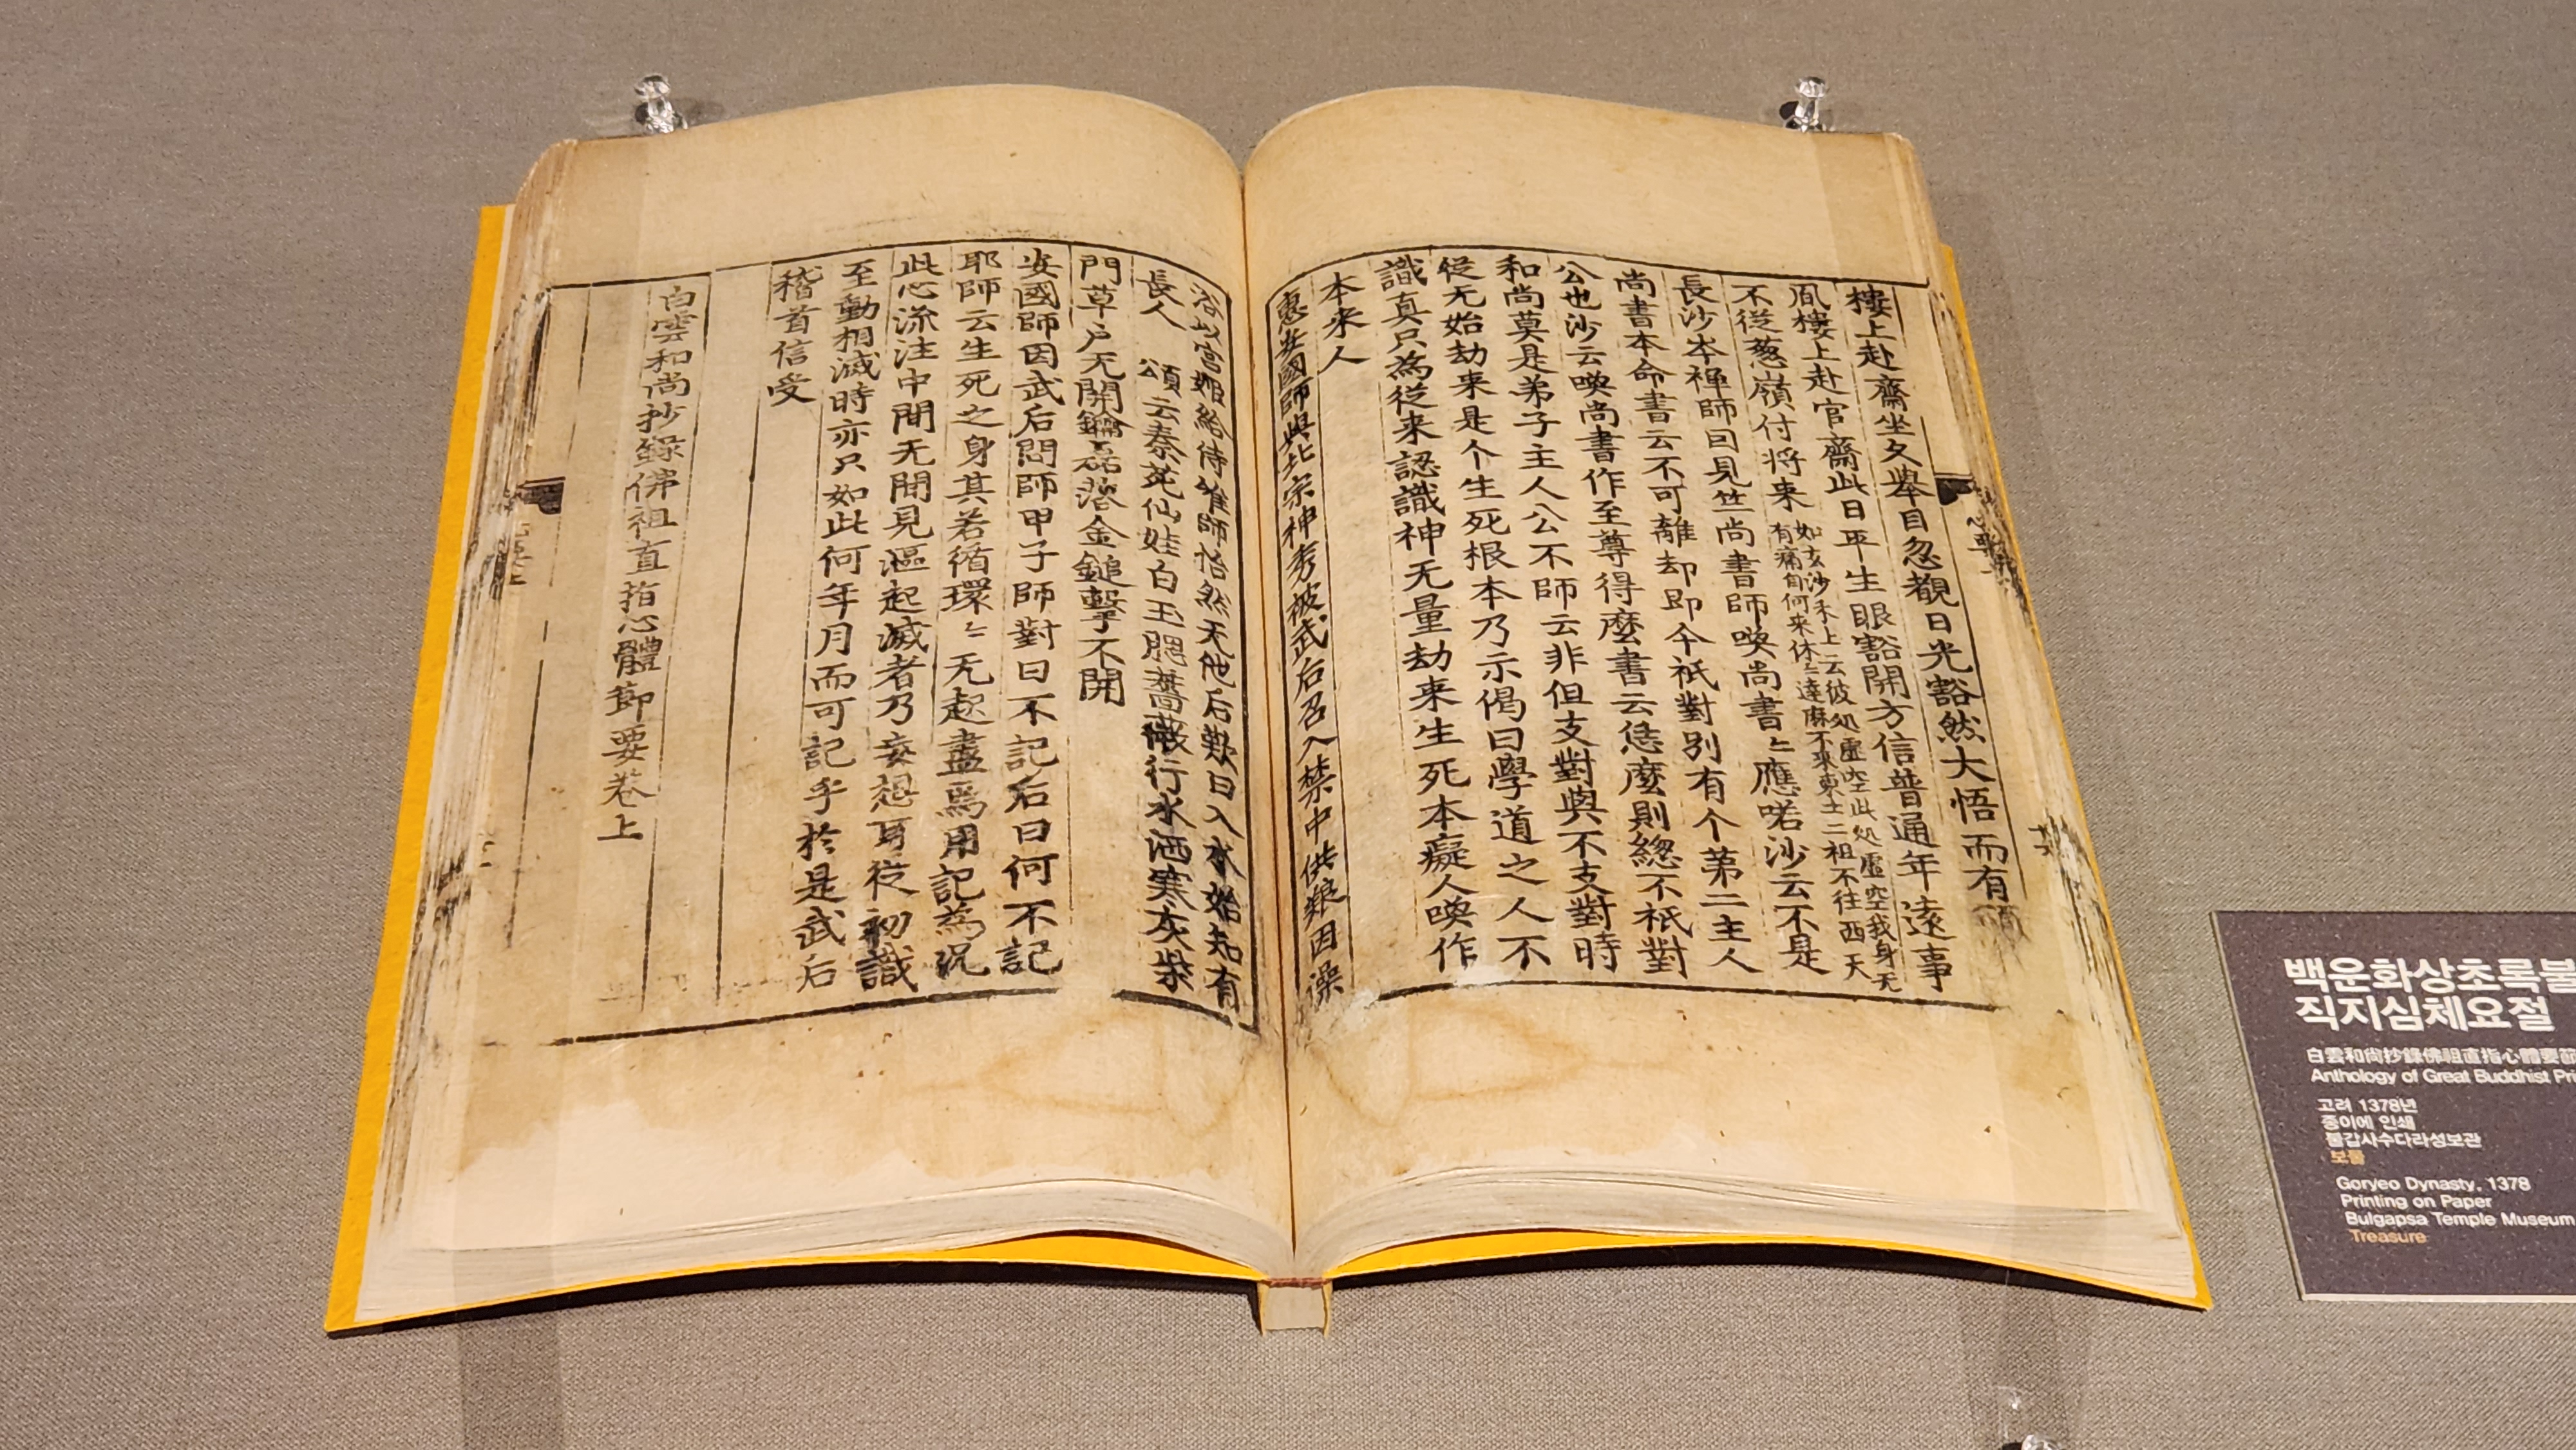 樓上赴齋坐久擧目忽覩日光豁然大悟而有頌
鳳樓上赴官齋此日平生眼豁開方信普通年遠事
不從葱嶺付将来
如玄沙未上云彼処虛空此処虛空我身无
有痛自何来休〻達麻不来東土二祖不往西天
長沙岑禪師因見竺尚書師喚尚書〻應喏沙云不是
尚書本命書云不可離却即今祇對別有个第二主人
公也沙云喚尚書作至尊得麽書云恁麽則緫不祇對
和尚莫是弟子主人公不師云非但支對與不支對時
從无始劫来是个生死根本乃示偈曰學道之人不
識真只為從来認識神无量劫来生死本癡人喚作
本来人
惠安國師與北宗神秀被武后召入禁中供養因澡
浴以宮姬給侍唯師怡然无他后歎曰入水始知有
長人 頌云秦苑仙娃白玉腮薔薇行水洒寒灰柴
門草户无開鑰磊落金鎚擊不開
安國師因武后問師甲子師對曰不記后曰何不記
耶師云生死之身其若循環〻无起盡焉用記為況
此心流注中間无間見漚起滅者乃妄想耳從初識
至動相滅時亦只如此何年月而可記乎於是武后
稽首信受
白雲和尚抄錄佛祖直指心體節要卷上
백운화상초록불
직지심체요절
白雲和尙抄錄佛祖直指心體要節
Anthology of Great Buddhist
고려 1378년
종이에 인쇄
불갑사수다라성보관
보물
Goryeo Dynasty, 1378
Printing on Paper
Bulgapsa Temple Museum
Treasure